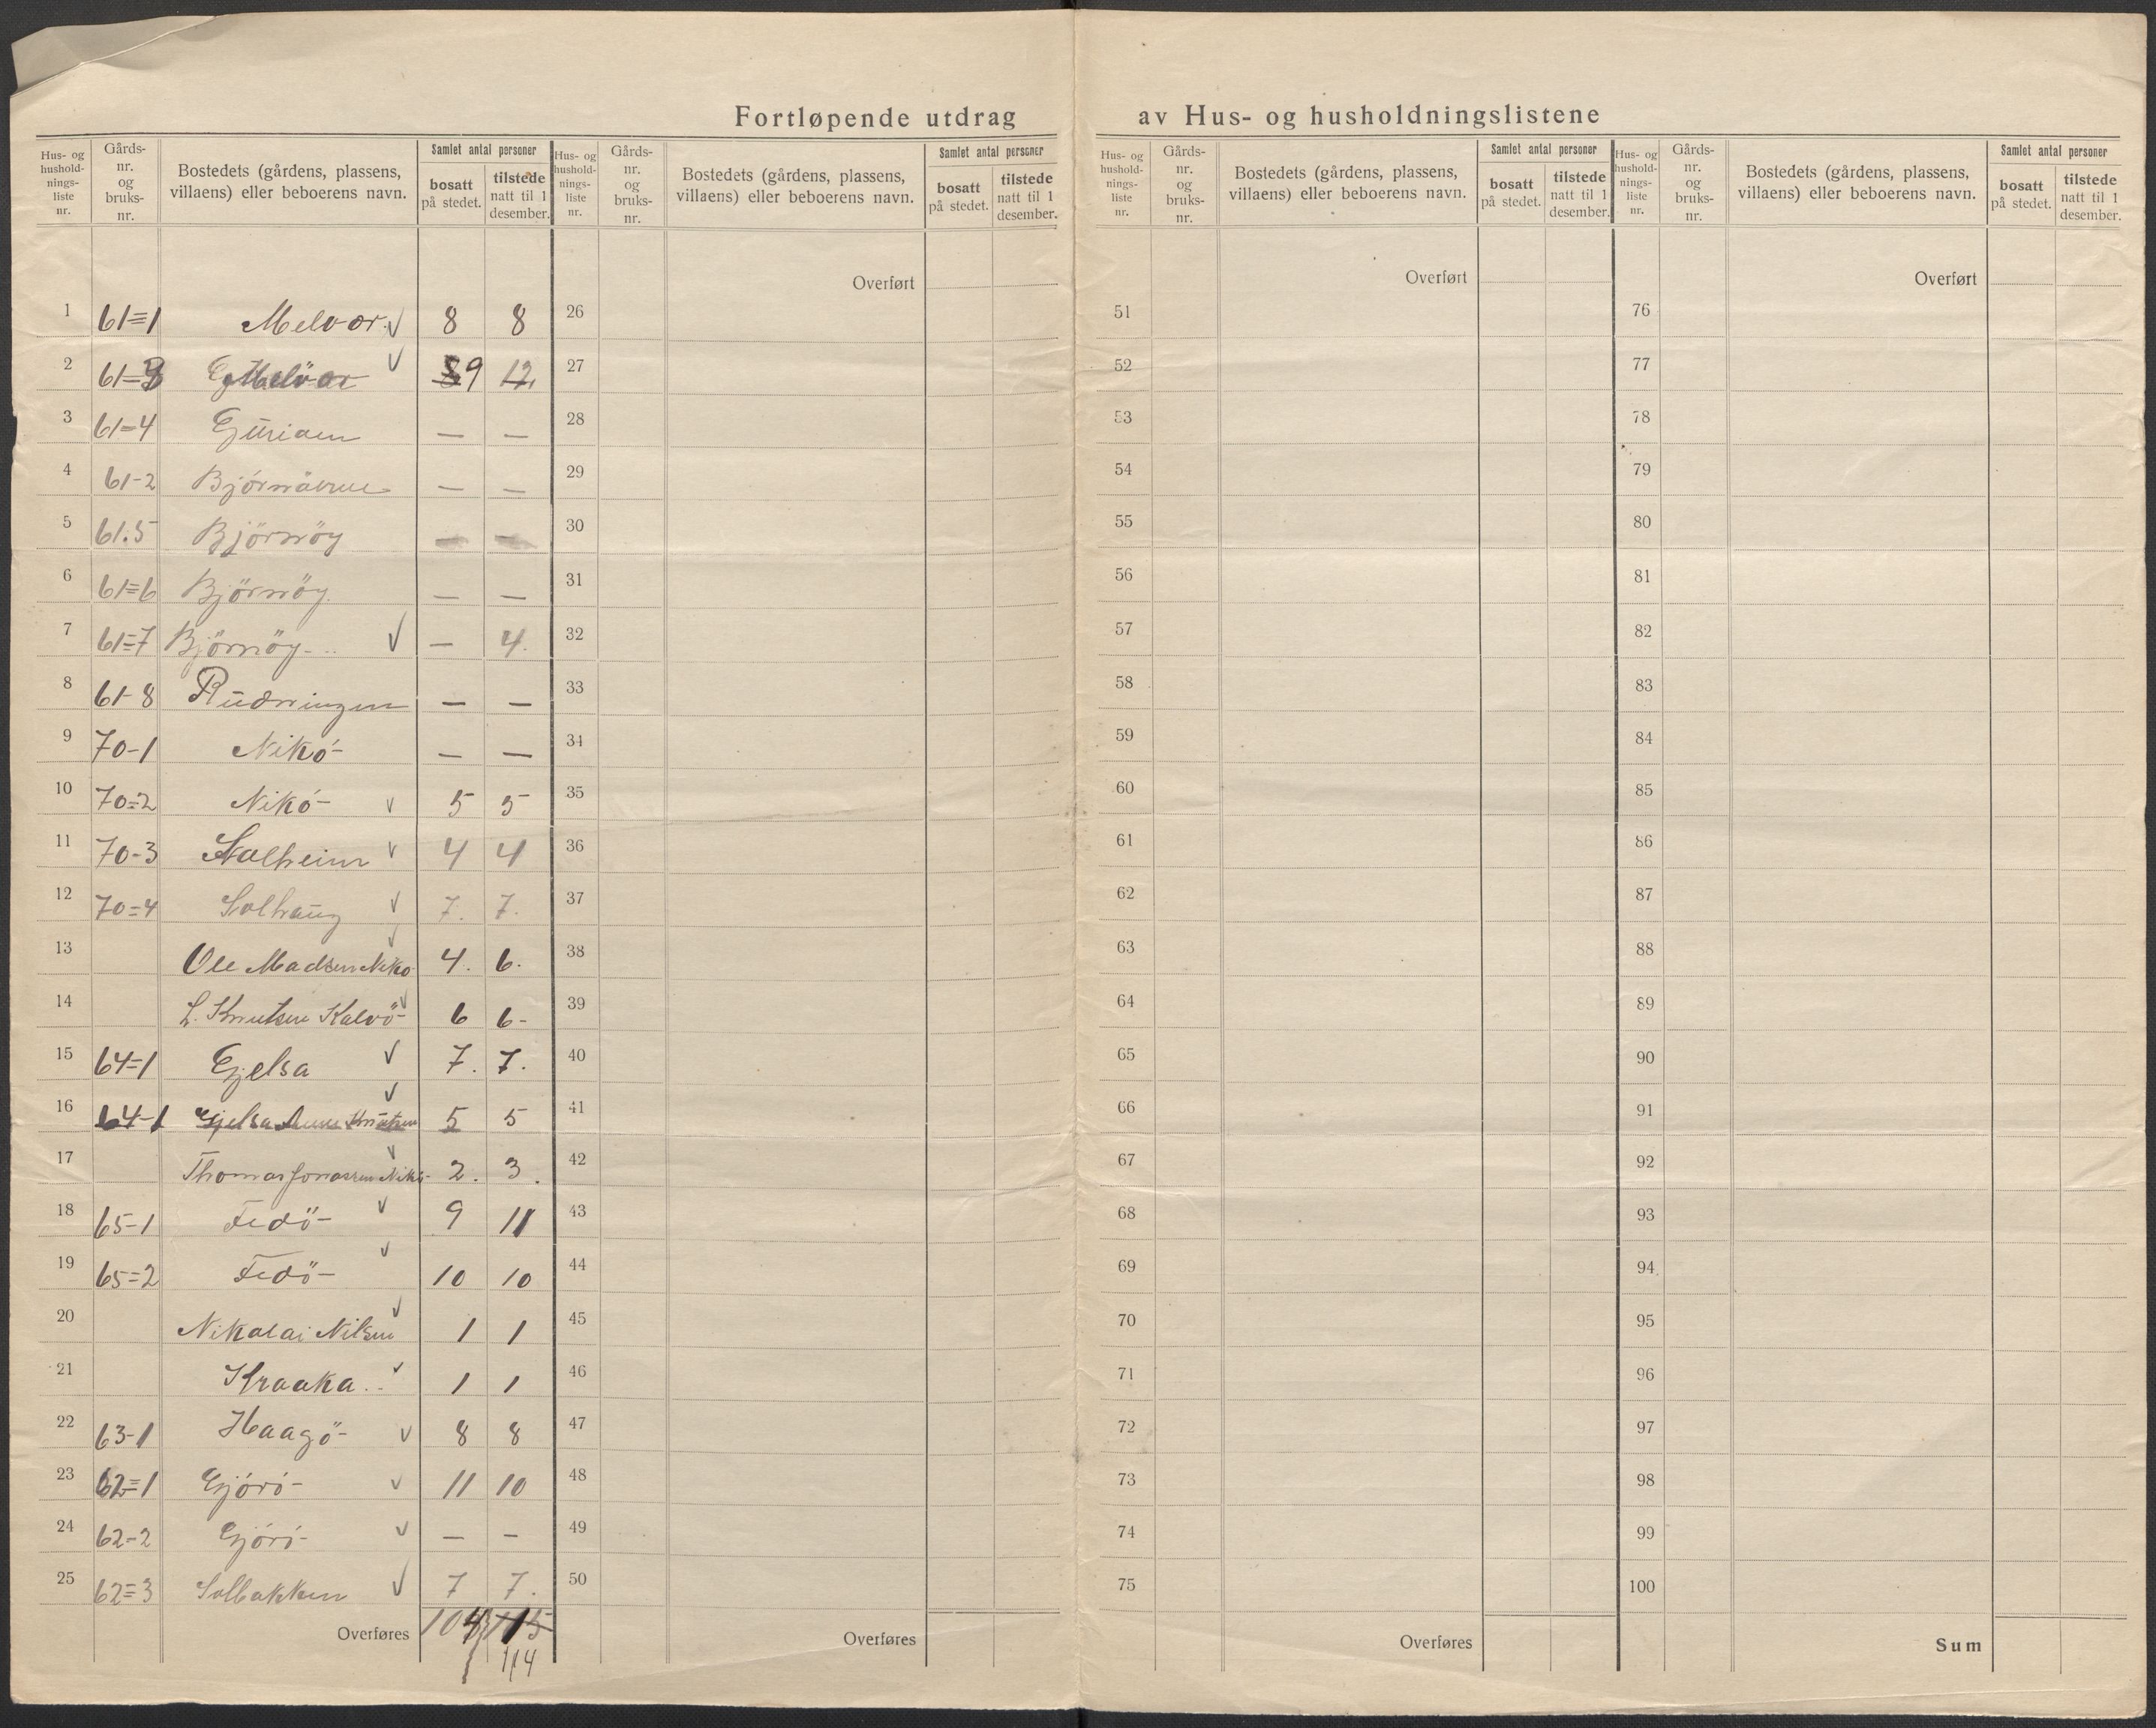 Fortløpende utdrag av Hus- og husholdningslistene
Hus- og hushold-nings-liste nr. Gårds-nr. og bruks-nr. Bostedets (gårdens, plassens, villaens) eller beboerens navn. Samlet antal personer bosatt på stedet. tilstede natt til 1 desember.
1 61=1 Melvær 8 8
2 61=3 Melvær 9 12
3 61=4 Gjuriaen — —
4 61-2 — —
5 61.5 Björnöy — —
6 61=6 Björnöy — —
7 61=7 Björnöy — 4.
8 61-8 Rudningen — —
9 70-1 Nikö — —
10 70=2 Nikö 5 5
11 70-3 Stalheim 4 4
12 70=4 Solhaug 7. 7.
13 Ole Madsen Niko 4. 6.
14 L. Knutsen Kalvö 6 6-
15 64=1 Gjelsa 7. 7.
16 64-1 Gjelsa Knutsen 5 5
17 Thomas Jonassen Nikö 2. 3.
18 65-1 Fedö- 9 11
19 65=2 Fedö- 10 10
20 Nikolai Nilsen 1 1
21 Kraaka.. 1 1
22 63-1 Haagö- 8 8
23 62=1 Gjörö- 11 10
24 62-2 Gjörö- — -
25 62=3 Solbakken 7 7.
Overføres 104 115
114
Hus- og hushold-nings-liste nr. Gårds-nr. og bruks-nr. Bostedets (gårdens, plassens, villaens) eller beboerens navn. Samlet antal personer bosatt på stedet. tilstede natt til 1 desember.
Overført
26
27
28
29
30
31
32
33
34
35
36
37
38
39
40
41
42
43
44
45
46
47
48
49
50
Overføres
Hus- og hushold-nings-liste nr. Gårds-nr. og bruks-nr. Bostedets (gårdens, plassens, villaens) eller beboerens navn. Samlet antal personer bosatt på stedet. tilstede natt til 1 desember.
Overført
51
52
53
54
55
56
57
58
59
60
61
62
63
64
65
66
67
68
69
70
71
72
73
74
75
Overføres
Hus- og hushold-nings-liste nr. Gårds-nr. og bruks-nr. Bostedets (gårdens, plassens, villaens) eller beboerens navn. Samlet antal personer bosatt på stedet. tilstede natt til 1 desember.
Overført
76
77
78
79
80
81
82
83
84
85
86
87
88
89
90
91
92
93
94
95
96
97
98
99
100
Sum